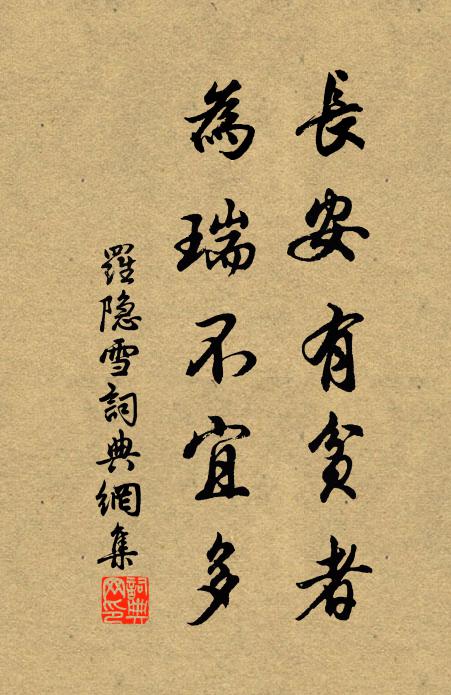 長安有貧者
為瑞不宜多
羅隐雪詞典網集
詞典网印